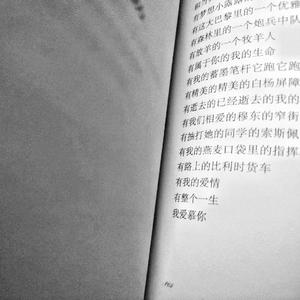 有梦想小露露
有这大巴黎里的一个优雅
有森林里的一个炮兵中队
有放羊的一个牧羊人
有属于你的我的生命
有我的蓄墨笔杆它跑它跑
有精美的精美的白杨屏障
有逝去的已经逝去的我的
有我们相爱的穆东的窄街
有抽打她的同学的索斯佩
有我的燕麦口袋里的指挥
有路上的比利时货车
有我的爱情
有整个一生
我爱慕你